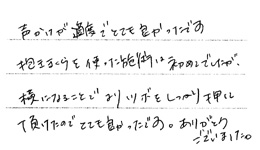 声かけが適度でとても良かったです
抱きまくらを使った施術は初めてでしたが、
横になることでよりツボをしっかり押して
頂けたのでとても良かったです。ありがとう
ございました。